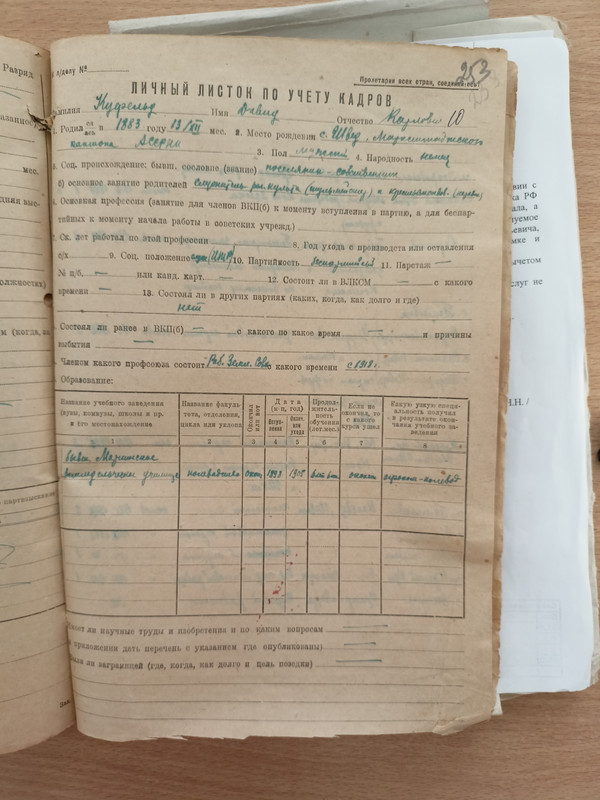 253
л/делу №
Пролетарии всех стран, соединяйтесь!
ЛИЧНЫЙ ЛИСТОК ПО УЧЕТУ КАДРОВ
Фамилия Имя Давид Отчество Карлович 10
1. Родил ся ась в 1883 году 13/XII мес. 2. Место рождения с. Швед, Марксштадтского
кантона АССРНП
3. Пол мужской 4. Народность немец
5. Соц. происхождение: бывш. сословие (звание) поселянин-собственник
б) основное занятие родителей
6. Основная профессия (занятие для членов ВКП(б) к моменту вступления в партию, а для беспар-
тийных к моменту начала работы в советских учрежд.)
7. Ск. лет работал по этой профессии 8. Год ухода с производства или оставления
с/х 9. Соц. положение 10. Партийность беспартийный 11. Партстаж —
№ п/б. — или канд. карт. — 12. Состоял ли в ВЛКСМ — с какого
времени — 13. Состоял ли в других партиях (каких, когда, как долго и где)
нет
Состоял ли ранее в ВКП(б) — с какого по какое время — и причины
выбытия —
Членом какого профсоюза состоит Раб. Земл. Сов. с какого времени с 1918 г.
Образование:
Название учебного заведения (вузы, комвузы, школы и пр. и его местонахождения
Название факуль-тета, отделения, цикла или уклона
Окончил или нет
Дата (м-ц, год)
Вступ-ления
Окон-чания ухода
Продол-житель-ность обучения (лет, мес.)
Если не окончил, то с какого курса ушел
Какую узкую специ-альность получил в результате окон-чания учебного за-ведения
1 2 3 4 5 6 7 8
бывш. Мариинское
земледельческое училище полеводство окон. окончил агроном-полевод
Имеет ли научные труды и изобретения и по каким вопросам —
(в приложении дать перечень с указанием где опубликованы) —
Был ли заграницей (где, когда, как долго и цель поездки) —
Разряд.
мес.